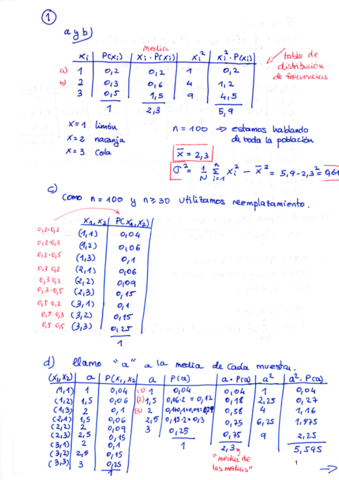 1
a y b)
media
xi P(xi) xi·P(xi) xi² xi²·P(xi)
a) 1 0,2 0,2 1 0,2
b) 2 0,3 0,6 4 1,2
3 0,5 1,5 9 4,5
1 2,3 5,9
tabla de distribución de frecuencias
x=1 limón
x=2 naranja
x=3 Cola
n=100 → estamos hablando de toda la población
x̄ = 2,3
σ² = 1/N Σ xi² - x̄² = 5,9 - 2,3² = 0,61
c) Como n=100 y n≥30 utilizamos reemplazamiento.
x₁,x₂ P(x₁,x₂)
0,2·0,2 (1,1) 0,04
0,2·0,3 (1,2) 0,06
0,2·0,5 (1,3) 0,1
0,3·0,2 (2,1) 0,06
0,3·0,3 (2,2) 0,09
0,3·0,5 (2,3) 0,15
0,5·0,2 (3,1) 0,1
0,5·0,3 (3,2) 0,15
0,5·0,5 (3,3) 0,25
1
d) llamo "a" a la media de cada muestra.
(x₁,x₂) a P(x₁,x₂) a P(a) a·P(a) a² a²·P(a)
(1,1) 1 0,04 1 0,04 0,04 1 0,04
(1,2) 1,5 0,06 1,5 0,06·2=0,12 0,18 2,25 0,27
(1,3) 2 0,1 2 0,58 4 1,16
(2,1) 1,5 0,06 2,5 0,15·2=0,3 0,75 6,25 1,875
(2,2) 2 0,09 3 0,25 0,75 9 2,25
(2,3) 2,5 0,15 1 2,3 5,595
(3,1) 2 0,1
(3,2) 2,5 0,15
(3,3) 3 0,25
1
"media de las medias"